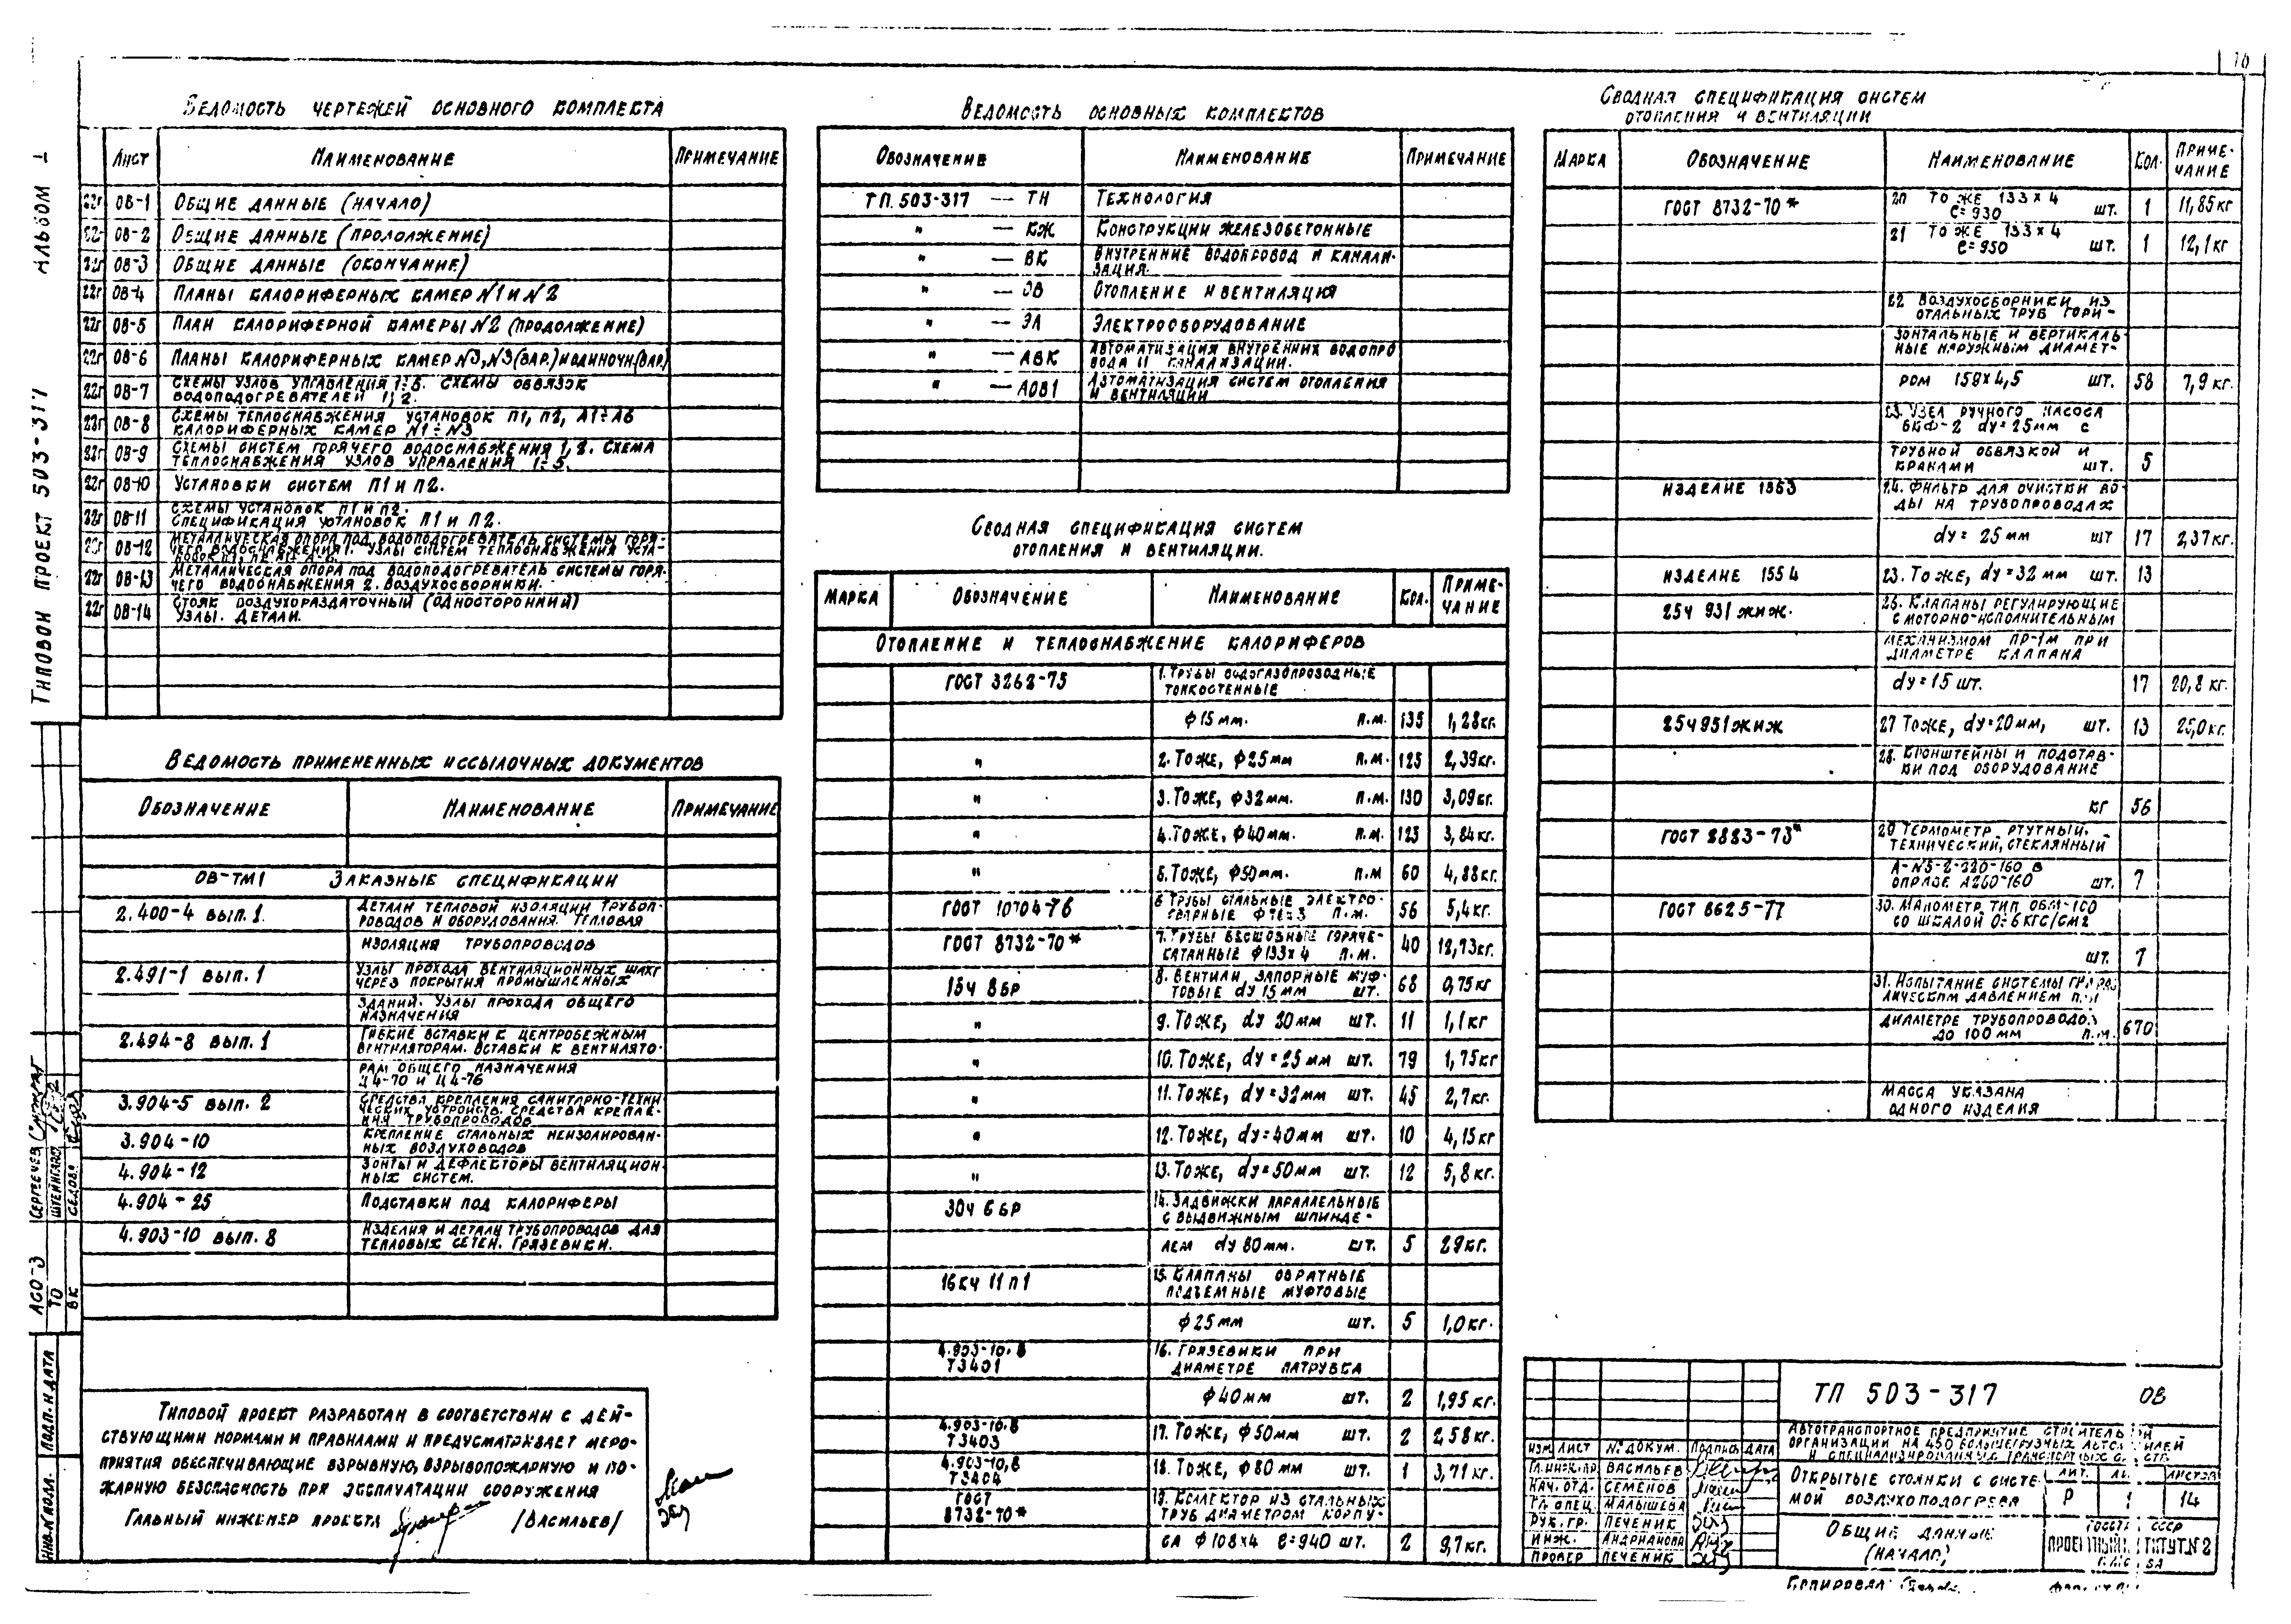 10
Альбом I
Типовой проект 503-317
Ведомость чертежей основного комплекта
Лист Наименование Примечание
22г ОВ-1 Общие данные (начало)
22г ОВ-2 Общие данные (продолжение)
22г ОВ-3 Общие данные (окончание)
22г ОВ-4 Планы калориферных камер N1 и N2
22г ОВ-5 План калориферной камеры N2 (продолжение)
22г ОВ-6 Планы калориферных камер N3, N3 (вар.) и одиночн. (вар)
22г ОВ-7 Схемы узлов управления 1÷5. Схемы обвязок
водоподогревателей 1; 2.
22г ОВ-8 Схемы теплоснабжения установок П1, П2, А1÷А6
калориферных камер N1÷N3
22г ОВ-9 Схемы систем горячего водоснабжения 1, 2. Схема
теплоснабжения узлов управления 1÷5.
22г ОВ-10 Установки систем П1 и П2.
22г ОВ-11 Схемы установок П1 и П2.
Спецификация установок П1 и П2.
22г ОВ-12 Металлическая опора под водоподогреватель системы горя-
чего водоснабжения 1. Узлы систем теплоснабжения уста-
22г ОВ-13 Металлическая опора под водоподогреватель системы горя-
чего водоснабжения 2. Воздухосборники.
22г ОВ-14 Стояк воздухораздаточный (односторонний)
Узлы. Детали.
Ведомость примененных и ссылочных документов
Обозначение Наименование Примечание
ОВ-ТМ1 Заказные спецификации
2.400-4 вып. 1. Детали тепловой изоляции трубоп-
роводов и оборудования. Тепловая
изоляция трубопроводов
2.491-1 вып. 1 Узлы прохода вентиляционных шахт
через покрытия промышленных
зданий. Узлы прохода общего
назначения
2.494-8 вып. 1 Гибкие вставки к центробежным
вентиляторам. Вставки к вентилято-
рам общего назначения
Ц4-70 и Ц4-76
3.904-5 вып. 2 Средства крепления санитарно-техни
ческих устройств. Средства крепле-
ния трубопроводов
3.904-10 Крепление стальных неизолирован-
ных воздуховодов
4.904-12 Зонты и дефлекторы вентиляцион-
ных систем.
4.904-25 Подставки под калориферы
4.903-10 вып. 8 Изделия и детали трубопроводов для
тепловых сетей. Грязевики.
Типовой проект разработан в соответствии с дей-
ствующими нормами и правилами и предусматривает меро-
приятия обеспечивающие взрывную, взрывопожарную и по-
жарную безопасность при эксплуатации сооружения
Главный инженер проекта /Васильев/
Ведомость основных комплектов
Обозначение Наименование Примечание
ТП. 503-317 — ТН Технология
" — КЖ Конструкции железобетонные
" — ВК Внутренние водопровод и канали-
зация.
" — ОВ Отопление и вентиляция
" — ЭЛ Электрооборудование
" — АВК Автоматизация внутренних водопро
вода и канализации.
" — АОВ1 Автоматизация систем отопления
и вентиляции
Сводная спецификация систем
отопления и вентиляции.
Марка Обозначение Наименование Кол. Приме-
чание
Отопление и теплоснабжение калориферов
ГОСТ 3262-75 1. Трубы водогазопроводные
тонкостенные
ф15 мм. п.м. 135 1,28кг.
" 2. То же, ф25мм п.м. 125 2,39кг.
" 3. То же, ф32мм. п.м. 130 3,09кг.
" 4. То же, ф40мм. п.м. 125 3,84кг.
" 5. То же, ф50мм. п.м 60 4,88кг.
ГОСТ 10704-76 6 Трубы стальные электро-
сварные ф76×3 п.м. 56 5,4кг.
ГОСТ 8732-70* 7. Трубы бесшовные горяче-
катанные ф133×4 п.м. 40 12,73кг.
15ч 8бр 8. Вентили запорные муф-
товые dу 15мм шт. 68 0,75кг
" 9. То же, dу 20мм шт. 11 1,1кг
" 10. То же, dу=25мм шт. 79 1,75кг
" 11. То же, dу=32мм шт. 45 2,7кг.
" 12. То же, dу=40мм шт. 10 4,15кг
" 13. То же, dу=50мм шт. 12 5,8кг.
30ч 6бр 14. Задвижки параллельные
с выдвижным шпинде-
лем dу 80мм. шт. 5 29кг.
16кч 11п1 15. Клапаны обратные
подъемные муфтовые
ф25мм шт. 5 1,0кг.
4.903-10.8
Т3401 16. Грязевики при
диаметре патрубка
ф40мм шт. 2 1,95кг.
4.903-10.8
Т3403 17. То же, ф50мм шт. 2 2,58кг.
4.903-10.8
Т3404 18. То же, ф80мм шт. 1 3,71кг.
ГОСТ
8732-70* 19. Коллектор из стальных
труб диаметром корпу-
са ф108×4 ℓ=940 шт. 2 9,7кг.
Сводная спецификация систем
отопления и вентиляции
Марка Обозначение Наименование Кол. Приме-
чание
ГОСТ 8732-70* 20 То же 133×4
ℓ=930 шт. 1 11,85кг
21 То же 133×4
ℓ=950 шт. 1 12,1кг
22 Воздухосборники из
стальных труб гори-
зонтальные и вертикаль-
ные наружным диамет-
ром 158×4,5 шт. 58 7,9кг.
23. Узел ручного насоса
БКФ-2 dу=25мм с
трубной обвязкой и
кранами шт. 5
Изделие 1553 24. Фильтр для очистки во-
ды на трубопроводах
dу=25мм шт 17 2,37кг.
Изделие 1554 23. То же, dу=32мм шт. 13
25ч 931нж. 26. Клапаны регулирующие
с моторно-исполнительным
механизмом ПР-1М при
диаметре клапана
dу=15 шт. 17 20,8кг.
25ч 931нж 27 То же, dу=20мм, шт. 13 25,0кг.
28. Кронштейны и подстав-
ки под оборудование
кг 56
ГОСТ 2823-73* 29 Термометр ртутный,
технический, стеклянный
А-N5-2-220-160 в
оправе шт. 7
ГОСТ 8625-77 30. Манометр тип ОБМ-160
со шкалой 0÷6 кгс/см2
шт. 7
31. Испытание системы гидрав
лическим давлением при
диаметре трубопроводов
до 100мм п.м. 670
Масса указана
одного изделия
АСО-3 Сергеев
ТО Штейнгард
ВК Седова
Инв. N подл. Подп. и дата
ТП 503-317 ОВ
Автотранспортное предприятие строительной
организации на 450 большегрузных автомобилей
Изм Лист № докум. Подпись Дата
Гл.инж.пр. Васильев
Нач. отд. Семенов
Гл. спец. Малышева
Рук. гр. Печеник
Инж. Андрианова
Провер Печеник
Открытые стоянки с систе-
мой воздухоподогрева
Лит. Листов
Р 1 14
Общие данные
(начало)
Копировал: